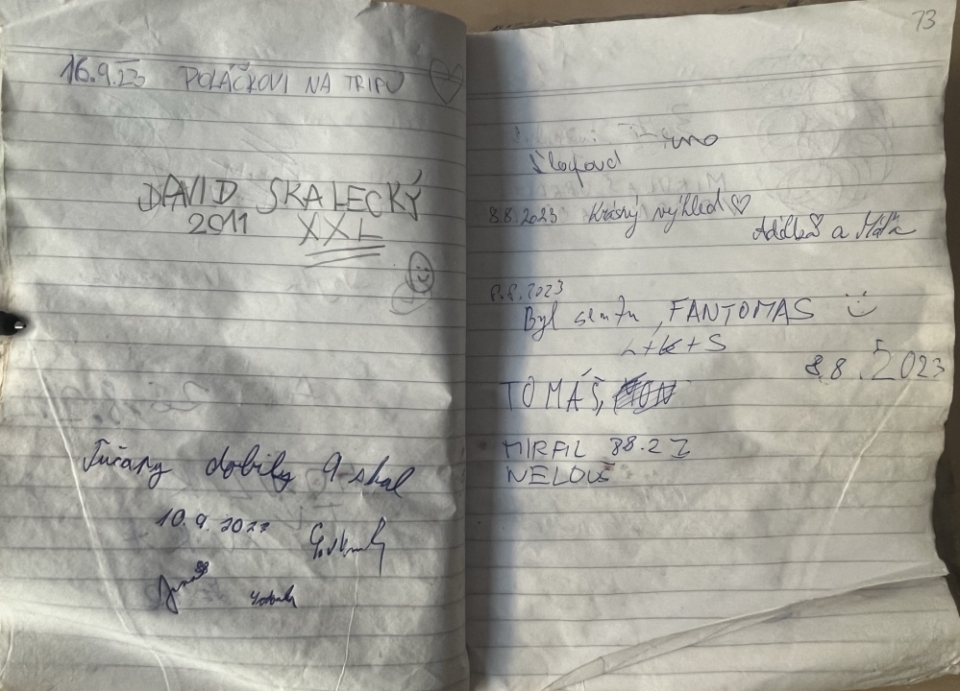 16.9.23 POLÁČKOVI NA TRIPU
DAVID SKALECKÝ
2011 XXL
Tuřany dobily 9 skal
10.9.2023
73
8.8.2023 Krásný výhled ♡
Adélka a
8.8.2023
Byl sem tu, FANTOMAS
L+K+S
8.8.2023
TOMÁŠ,
MIRFIL 88.23
NELOUŠ